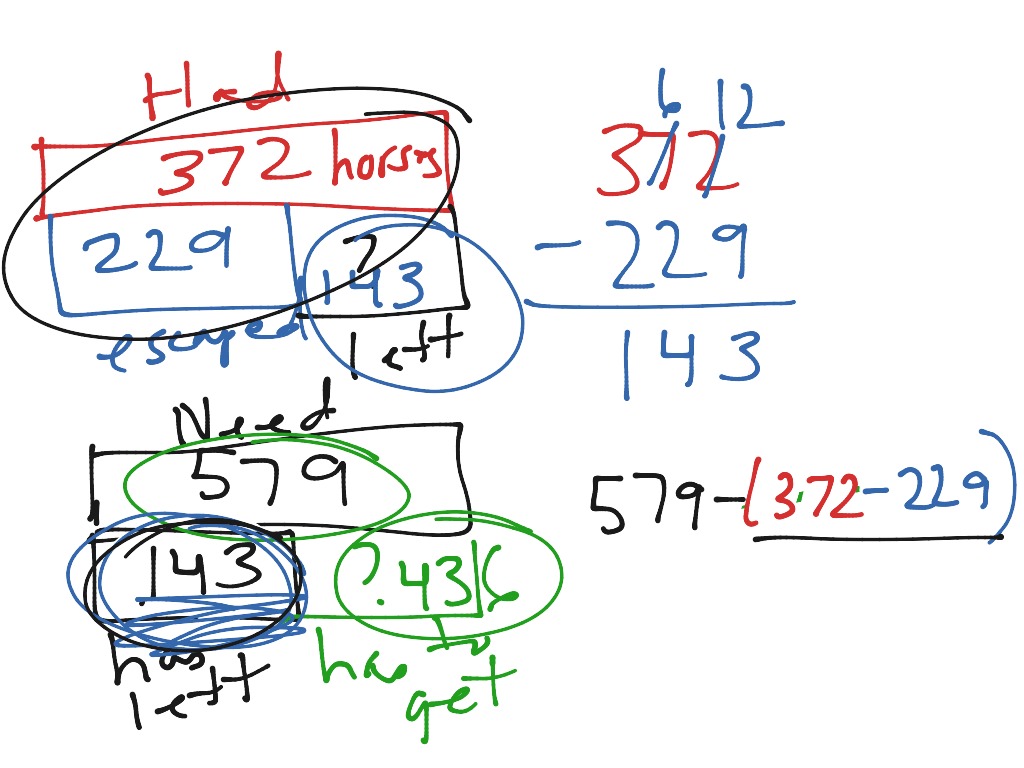 Had
372 horses
229
?
143
escaped
left
6 12
372
- 229
143
Need
579
143
? 436
has
left
has to
get
579 - (372 - 229)